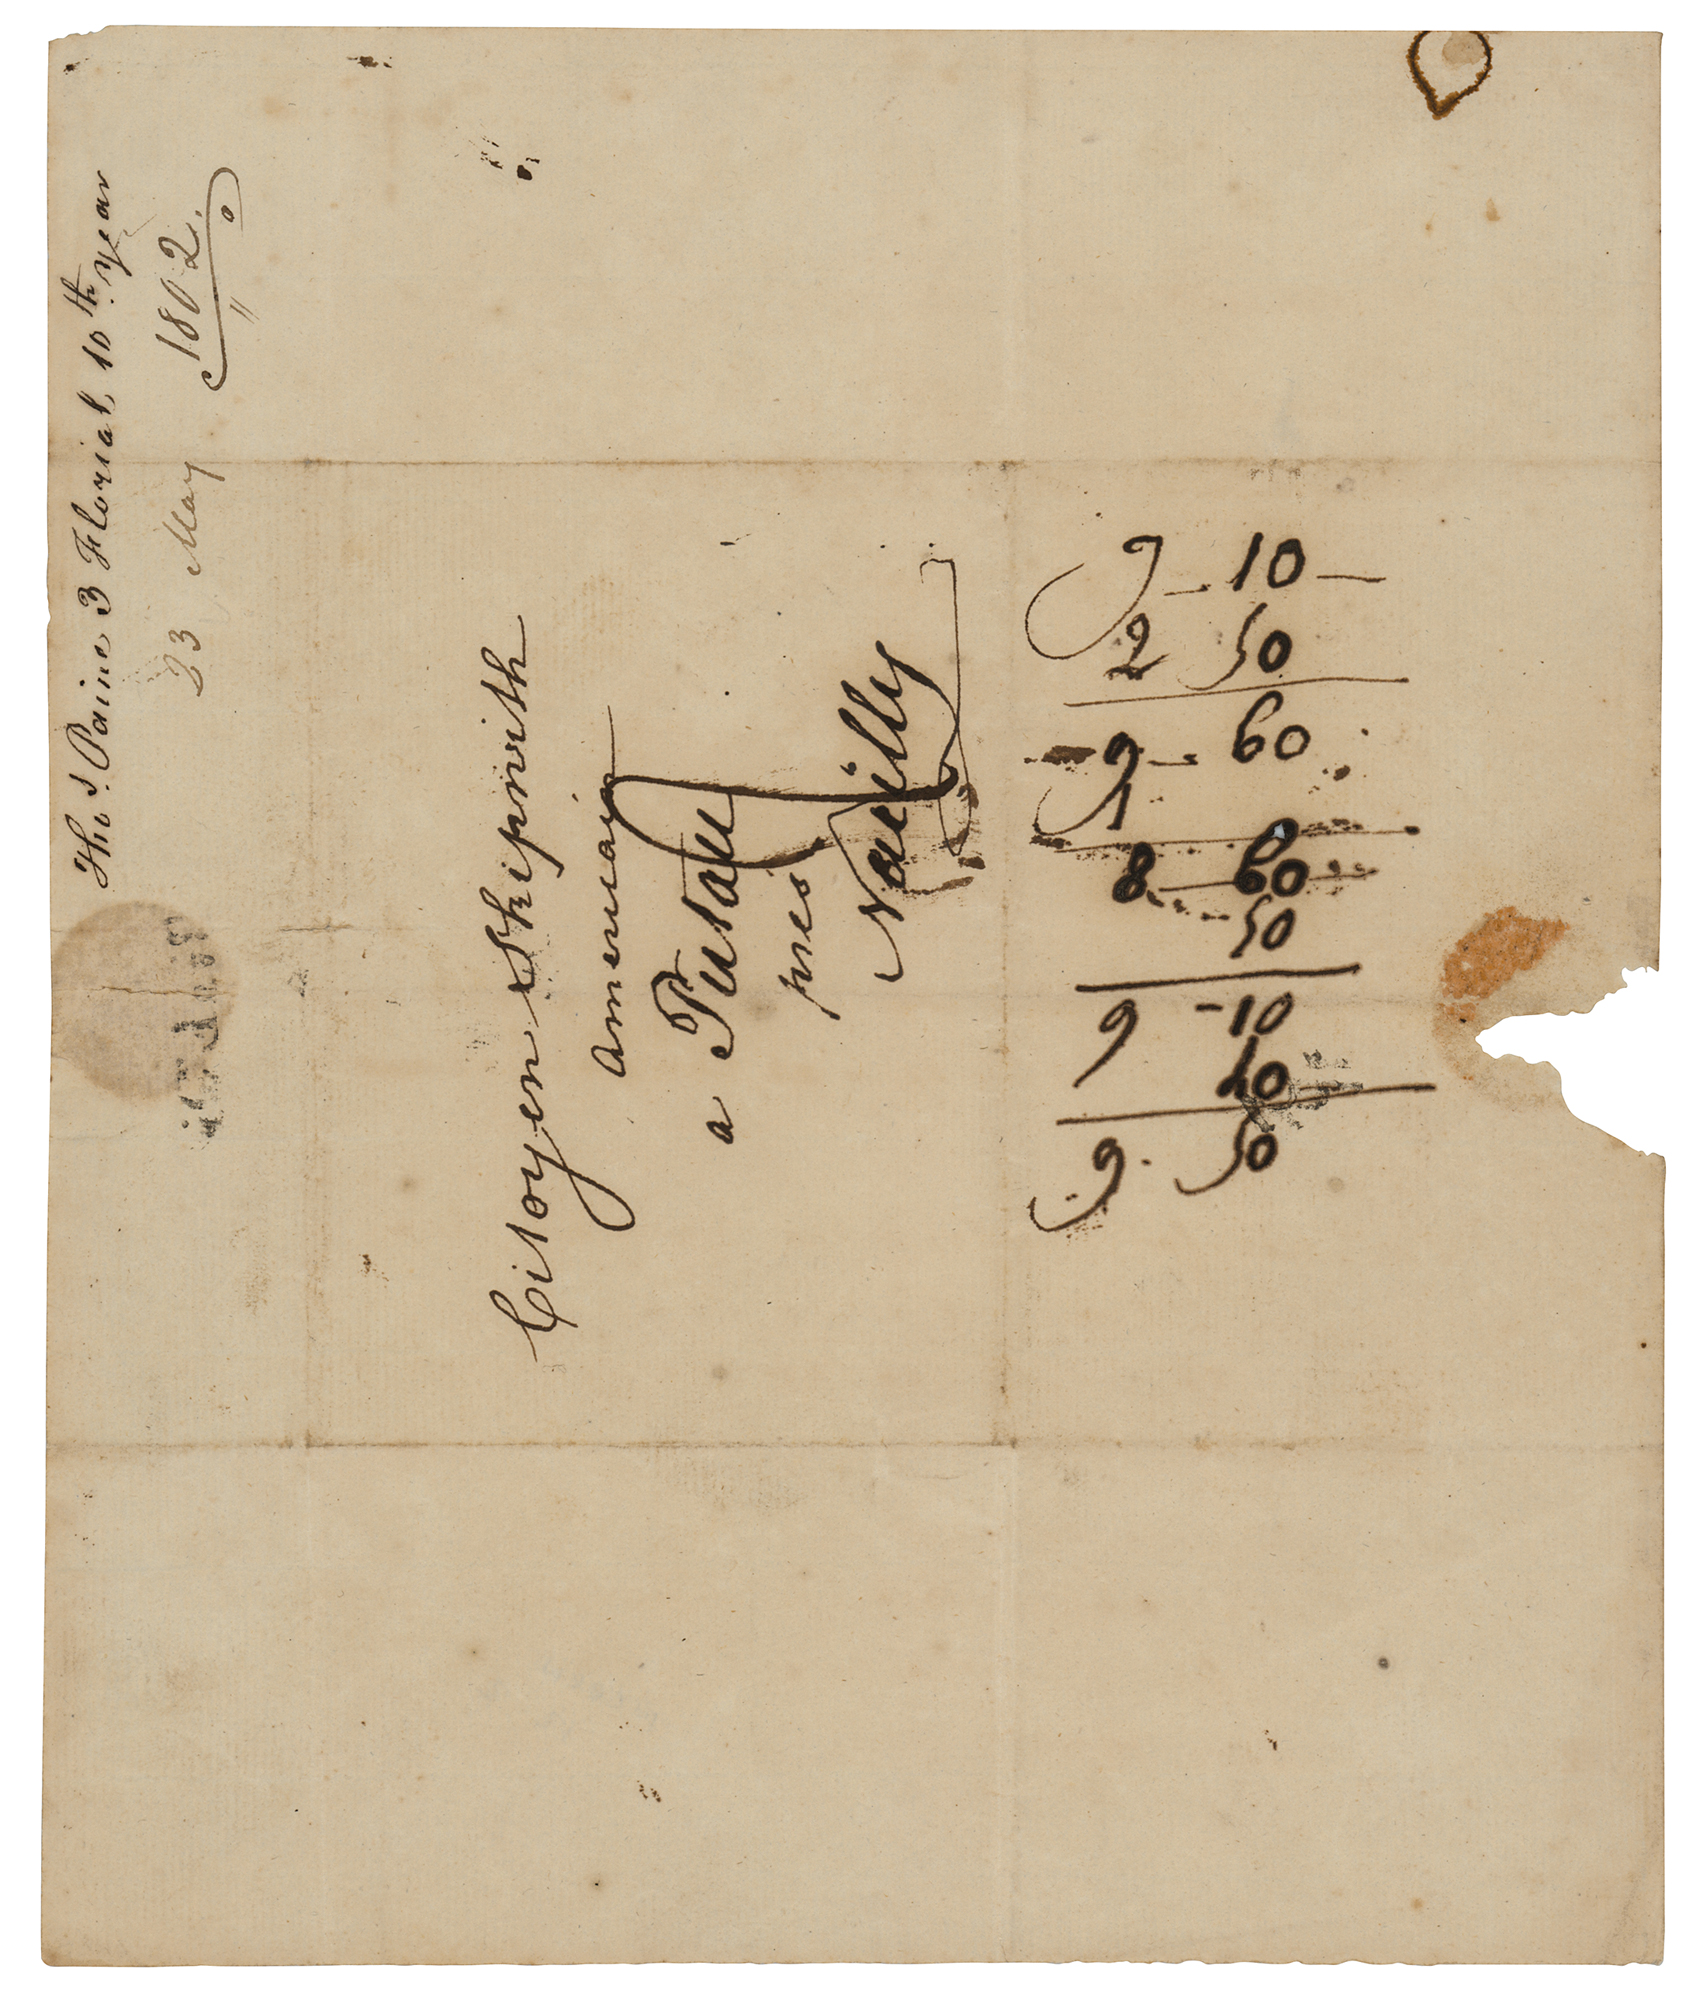 Ths. Paine 3 Florial 10th. year
23 May 1802.
Citoyen Skipwith
Americain
a Puteau
pres
Neuilly
9 - 10 -
2 50
9 - 60
1
8 - 60
50
9 - 10
40
9. 50